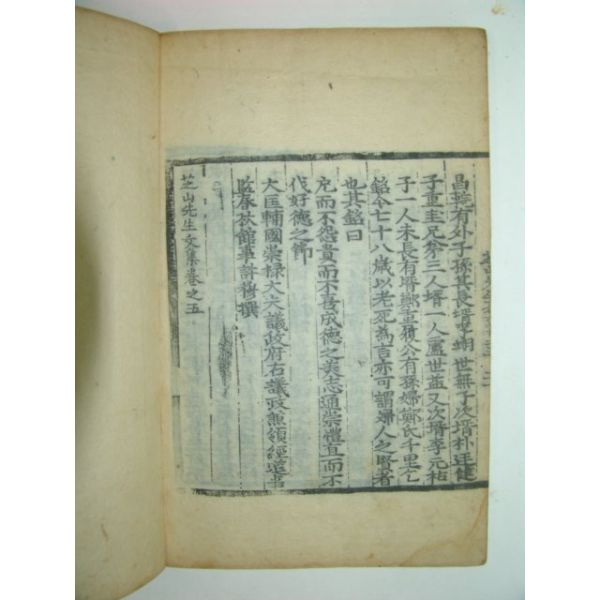 昌憲有外子孫其長壻李瑚世無子次壻朴廷健
子重圭兄弟三人壻一人盧世益又次壻李元祐
子一人未長有壻鄭重履公有孫婦鄭氏千里乞
銘今七十八歲以老死為言亦可謂婦人之賢者
也其銘曰
厄而不怨貴而不喜成德之美志通崇禮直而不
伐好德之篩
大匡輔國崇祿大夫議政府右議政兼領經筵事
監春秋館事許穆撰
芝山先生文集卷之五